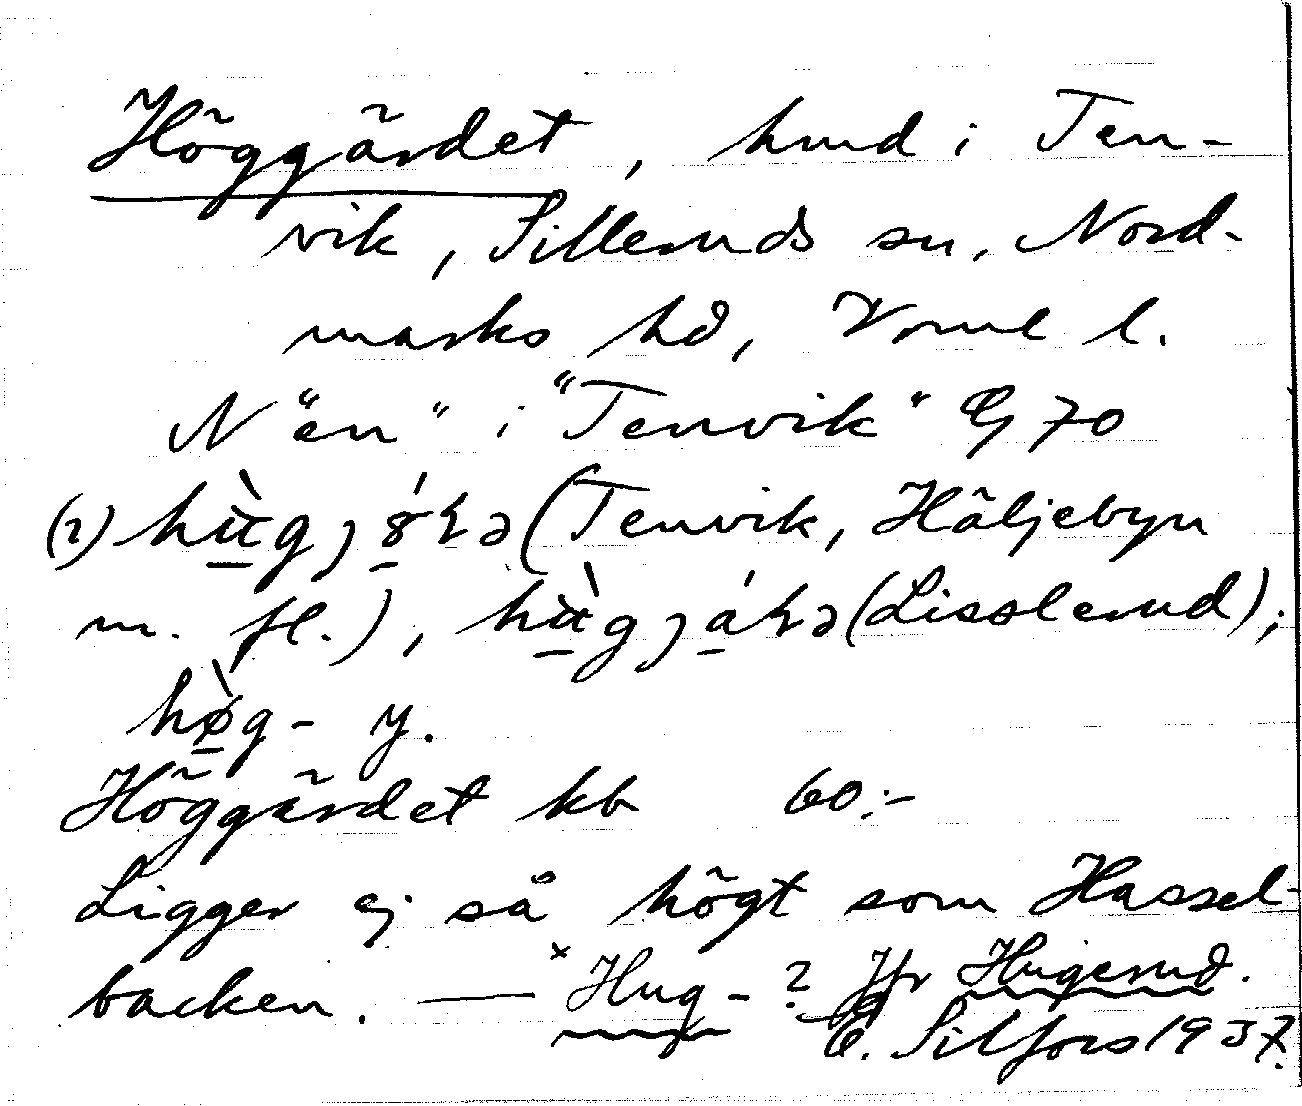 Höggärdet, hmd i Ten-
vik, Silleruds sn, Nord-
marks hd, Vrml l.
N "en" i "Tenvik" G 70
(1) hùgjó̱ɽə (Tenvik, Häljebyn
m. fl.), hùgjá̱ɽə (Lisslerud);
hø̱̀g- y.
Höggärdet kb 60:-
Ligger ej så högt som Hassel-
backen. — ˣHug-? Jfr Hugerud.
E. Silfors 1937.